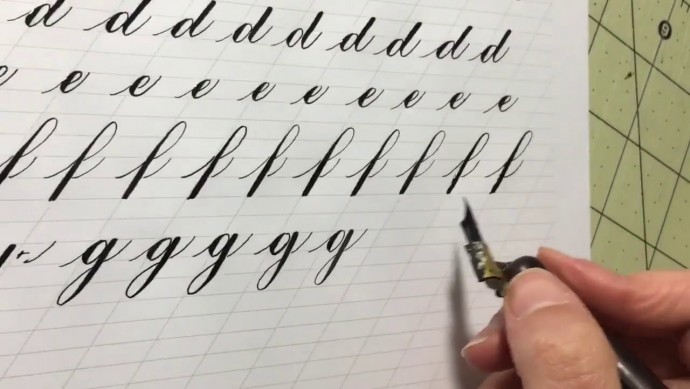 d d d d d d d d d
e e e e e e e e e
f f f f f f f f f f
g g g g g